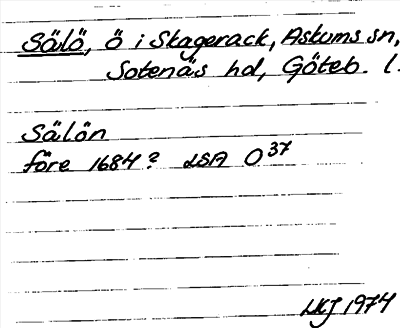 Sälö, ö i Skagerack, Askums sn,
Sotenäs hd, Göteb. l.
Sälön
före 1684? LSA O 37
1974